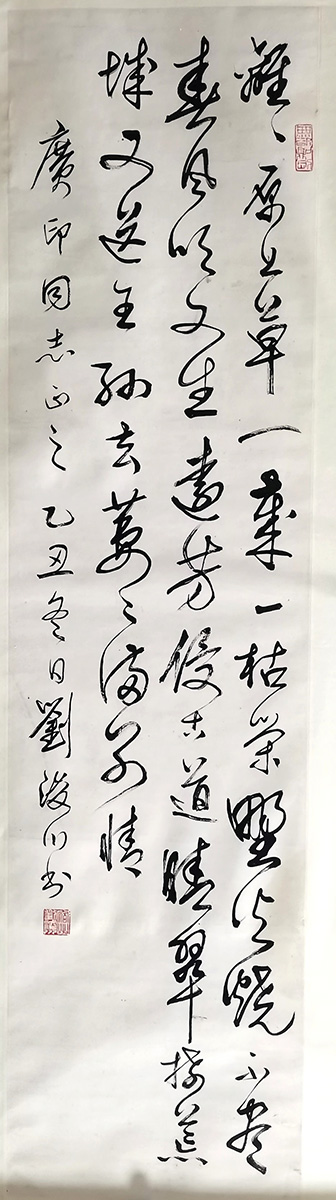 離〻原上草一歲一枯榮野火燒不盡
春風吹又生遠芳侵古道晴翠接荒
城又送王孫去萋〻滿別情
廣印同志正之 乙丑冬日劉浚川书